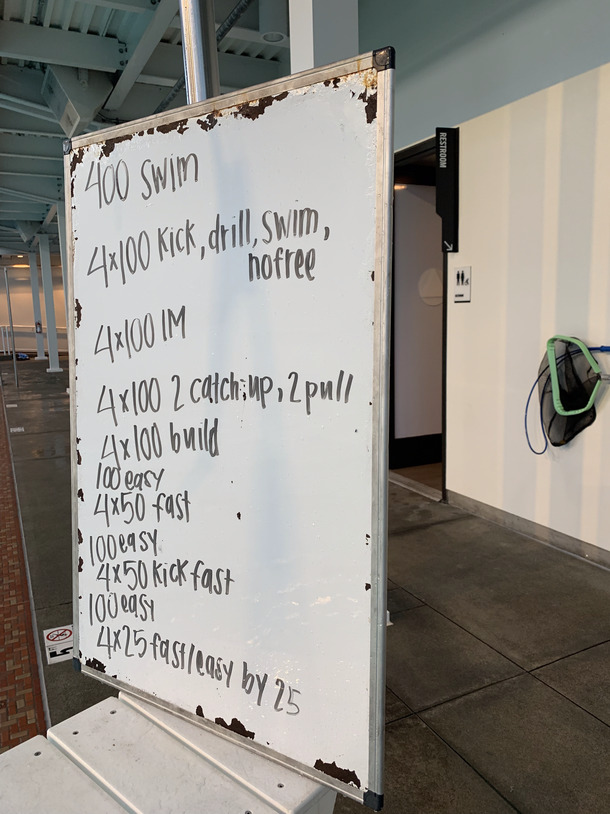 400 swim
4x100 kick, drill, swim,
nofree
4x100 IM
4x100 2 catch-up, 2 pull
4x100 build
100 easy
4x50 fast
100 easy
4x50 kick fast
100 easy
4x25 fast/easy by 25
RESTROOM